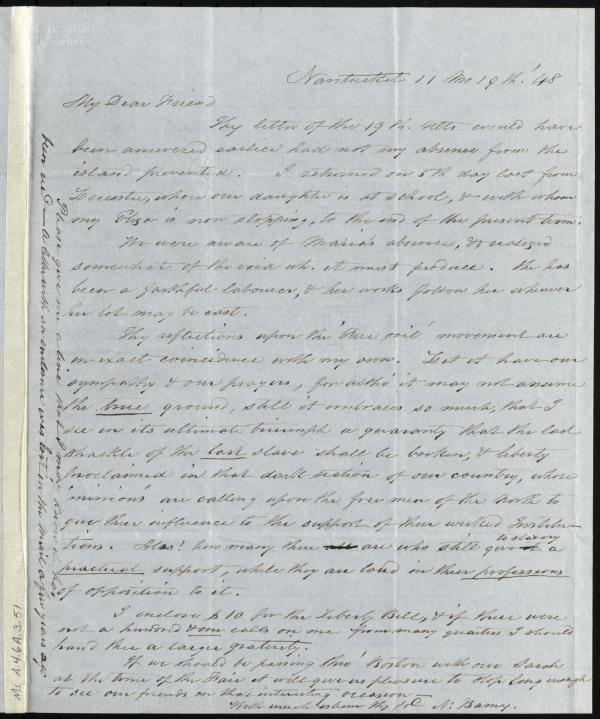 Nantucket 11 Mo 19th. '48
My Dear Friend
Thy letter of the 19th. Ulto would have
been answered earlier had not my absence from the
island prevented. I returned on 5th day last from
Leicester, where our daughter is at school, & with whom
my Eliza is now stopping, to the end of the present term.
We were aware of Maria's absence, & realized
somewhat of the void wh. it must produce. She has
been a faithful labourer, & her works follow her wherever
her lot may be cast.
Thy reflections upon the 'Free soil' movement are
in exact coincidence with my own. Let it have our
sympathy & our prayers, for altho' it may not assume
the true ground, still it embraces so much, that I
see in its ultimate triumph a guaranty that the last
shackle of the last slave shall be broken, & liberty
proclaimed in that dark section of our country, whose
minions are calling upon the free men of the North to
give their influence to the support of their wicked Institu-
tions. Alas! how many there are who still give to slavery a
practical support, while they are loud in their professions
of opposition to it.
I enclose $10 for the Liberty Bell, & if there were
not a hundred & one calls on me from many quarters I should
hand thee a larger gratuity.
If we should be passing thro' Boston with our Sarah
at the time of the Fair it will give us pleasure to stop long enough
to see our friends on that interesting occasion—
With much esteem thy frd. N: Barney.
Please give me a line that I may know it has
been recd — a letter with an enclosure was lost in the mail a few years ago
Ms. A.4.6A.3.51